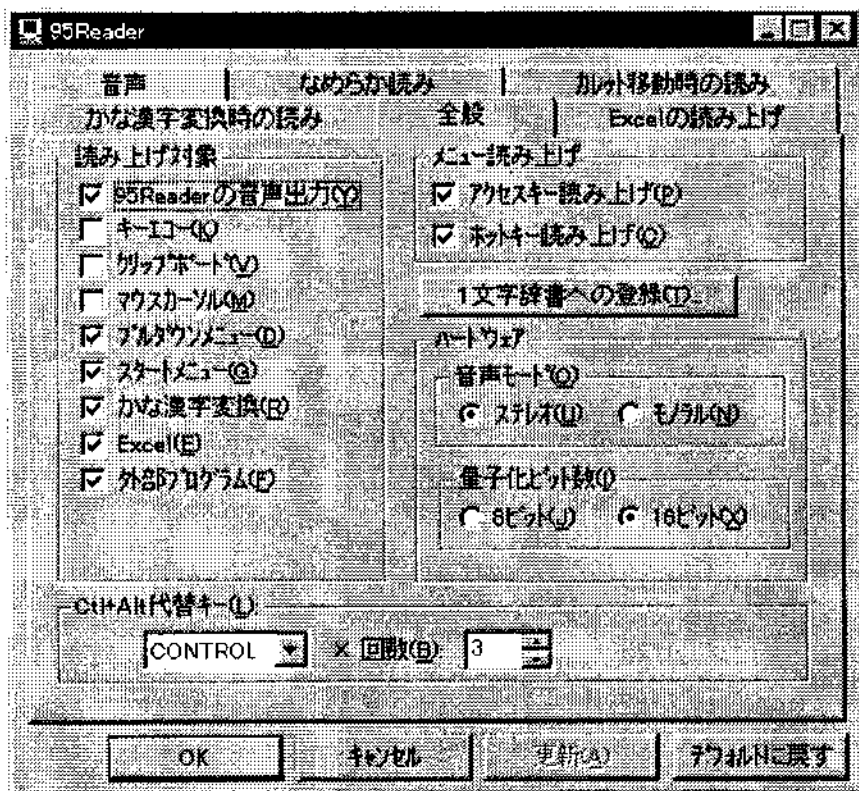 95Reader
音声 なめらか読み カレット移動時の読み
かな漢字変換時の読み 全般 Excelの読み上げ
読み上げ対象
95Readerの音声出力(Y)
キーエコー(K)
クリップボード(V)
マウスカーソル(M)
プルダウンメニュー(D)
スタートメニュー(G)
かな漢字変換(R)
Excel(E)
外部プログラム(F)
メニュー読み上げ
アクセスキー読み上げ(P)
ホットキー読み上げ(Q)
1文字辞書への登録(T)...
ハードウェア
音声モード(O)
ステレオ(U) モノラル(N)
量子化ビット数(I)
8ビット(J) 16ビット(X)
Ctl+Alt代替キー(L)
CONTROL × 回数(B) 3
OK キャンセル 更新(A) デフォルトに戻す